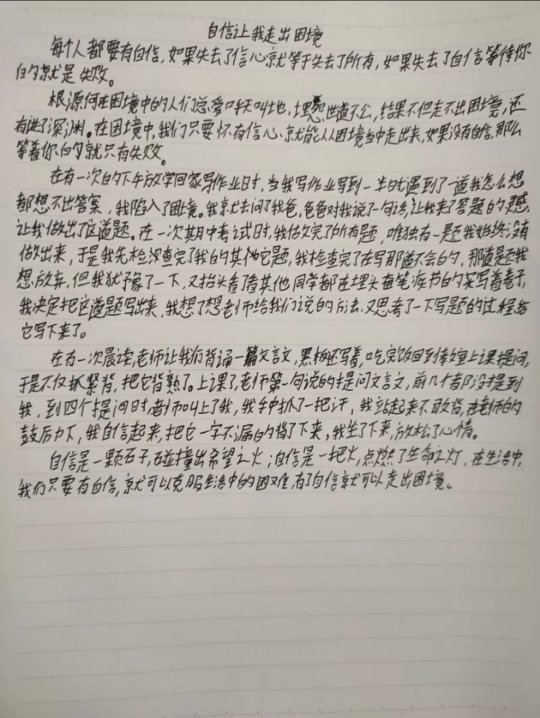 自信让我走出困境
每个人都要有自信,如果失去了信心就等于失去了所有,如果失去了自信等待你
的就是失败。
根源何在困境中的人们总爱口天叫地,埋怨世道不公,结果不但走不出困境,还
有进了深渊。在困境中,我们只要怀有信心,就能从困境当中走出来,如果没有自信,那么
等着你的就只有失败。
在有一次的下午放学回家写作业时,当我写作业写到一半时遇到了一道我怎么想
都想不出答案,我陷入了困境。我就去问了我爸,爸爸对我说了一句话,让我来了答题的灵感,
让我做出了这道题。在一次期中考试时,我做完了所有题,唯独有一题我始终没有
做出来,于是我先检查完了我的其他它题,我检查完了在写那道不会的,那道题我
想放弃,但我犹予了一下,又抬头看了看其他同学都在埋头奋笔疾书的写着卷子,
我决定把这道题写出来,我想了想老师给我们说的方法,又思考了一下写题的过程
它写下来了。
在有一次晨读老师让我们背诵一篇文言文,黑板还写着,吃完饭回到上课提问,
于是不仅抓紧背,把它背熟了。上课了,老师第一句说的提问文言文,前几个都没提到
我,到四个提问时,老师叫上了我,我手中抓了一把汗,我站起来不敢背,在老师的
鼓历下,我自信起来,把它一字不漏的背了下来,我坐了下来,放松了心情。
自信是一颗石子,碰撞出希望之火;自信是一把火,点燃了生命之灯,在生活中,
我们只要有自信,就可以克服生活中的困难,有了自信就可以走出困境。